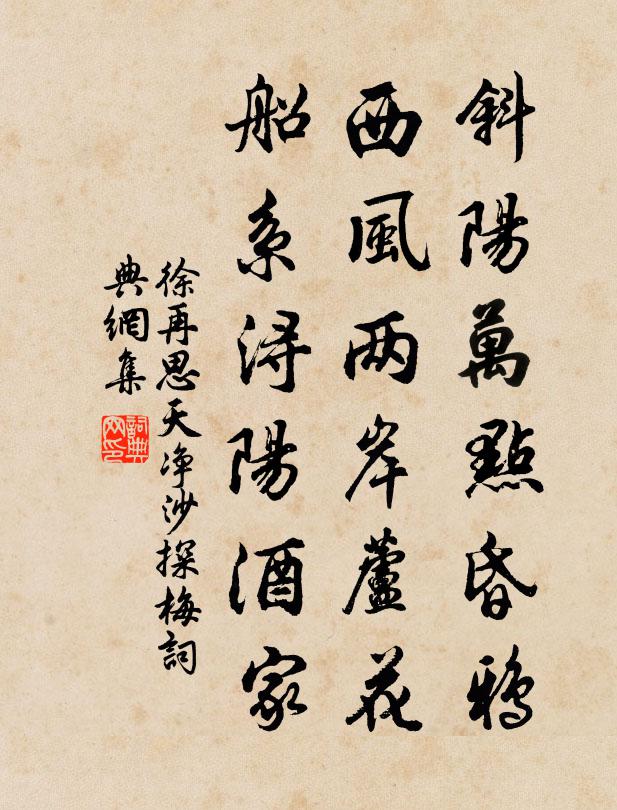 斜陽萬點昏鴉
西風两岸蘆花
船系潯陽酒家
徐再思天净沙探梅詞
典網集
詞典网印